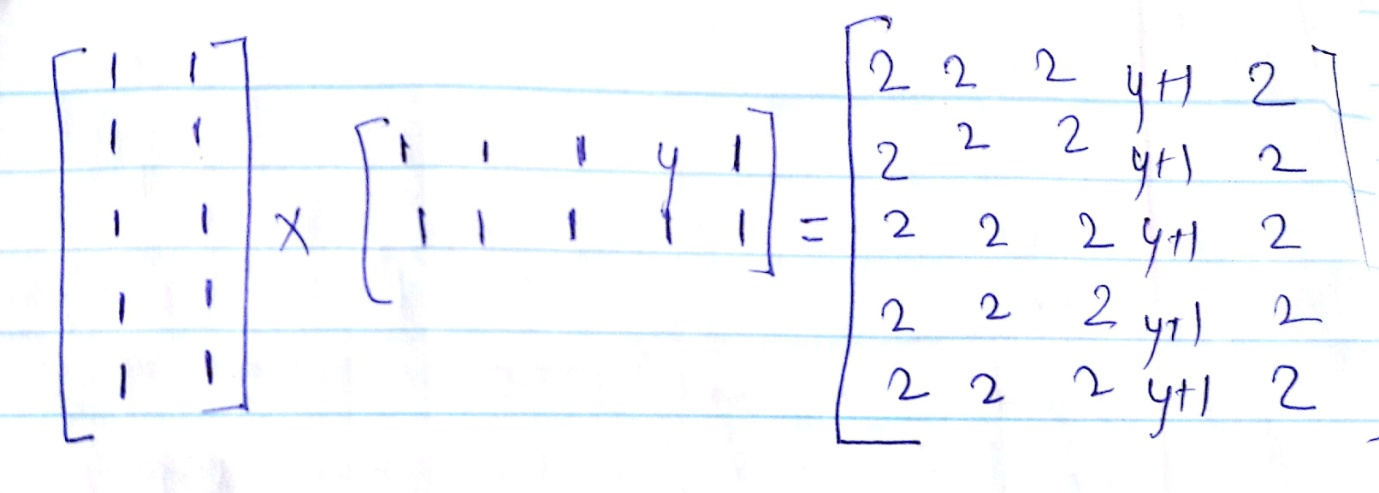 [1 1
1 1
1 1
1 1
1 1] × [1 1 1 y 1
1 1 1 1 1] = [2 2 2 y+1 2
2 2 2 y+1 2
2 2 2 y+1 2
2 2 2 y+1 2
2 2 2 y+1 2]